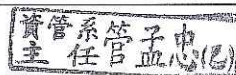 資管系
主任
管孟忠(乙)